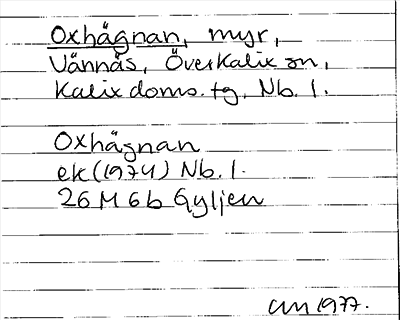 Oxhägnan, myr,
Vännäs, Överkalix sn,
Kalix doms. tg, Nb. l.
Oxhägnan
ek (1974) Nb. l.
26 M 6 b Gyljen
1977.